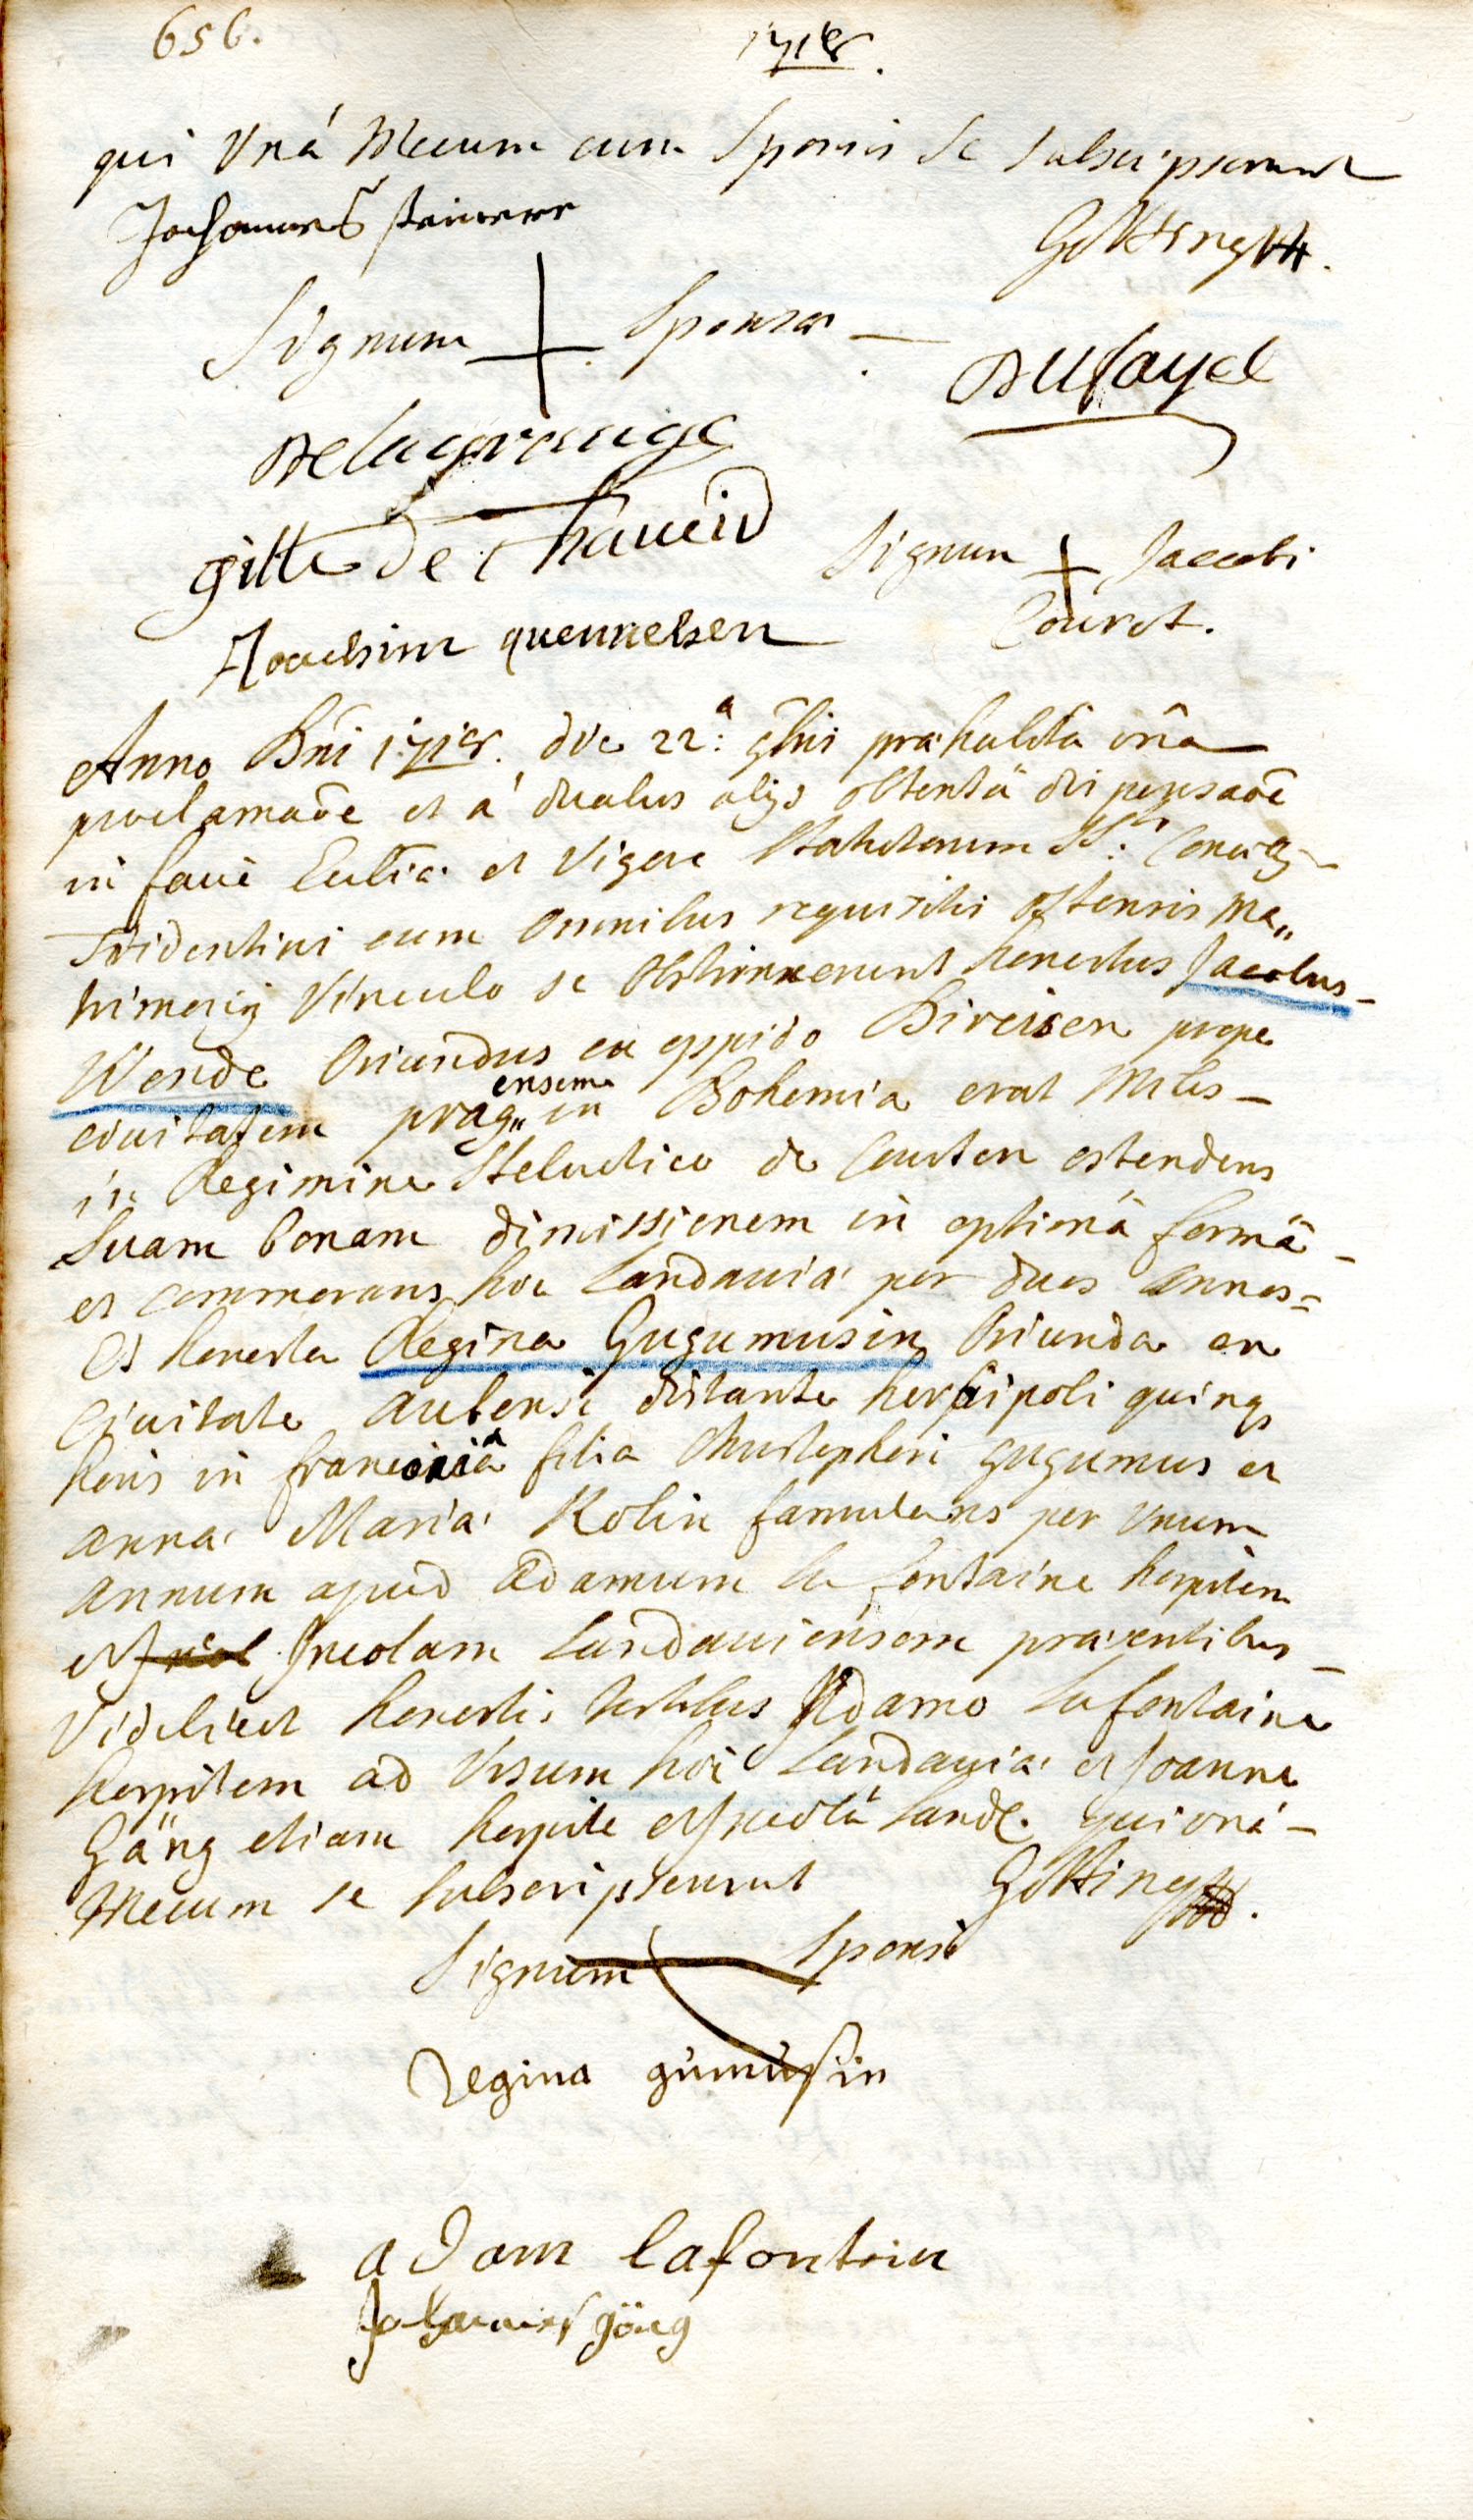 656.
1718.
qui Unà Mecum cum Sponsis se subscripserunt
Johannes
Gölting
Signum + Sponsæ
Dufayel
Delagrange
gitte De Chaueid
Signum + Jacobi
Couret.
Joachim quennelsen
Anno Dñi 1718. die 22.a 9bris præhabitâ unâ
proclamaõe et à duabus aliis obtentâ dispensaõe
in facie Ecclsiæ et Vigore Statutorum SS.ti Concilij
Tridentini cum omnibus requisitis ostensis Ma„
trimonij Vinculo se obstrinxerunt honestus Jacobus
Wende Oriundus ex oppido Bireisen prope
civitatem prag„ensem in Bohemia erat Miles
in Regimine Helvetico de Courten ostendens
suam bonam dimissionem in optimâ formâ
et commorans hoc Landaviæ per duos annos
Et honesta Regina Gugumusin Oriunda ex
Civitate Aubensi distante herbipoli quinq
horis in franconiâ filia Christophori Gugumus et
annæ Mariæ Kolin famulans per Unum
annum apud Adamum la fontaine hospitem
et Incolam Landaviensem præsentibus
Videlicet honestis testibus Adamo lafontaine
hospitem ad Ursum hoc Landaviæ et Joanne
Gäng etiam hospite et Incolâ Land. qui unà
Mecum se subscripserunt
Gölting
Signum Sponsi
Regina gümüsin
aDam lafontein
Johannes göng